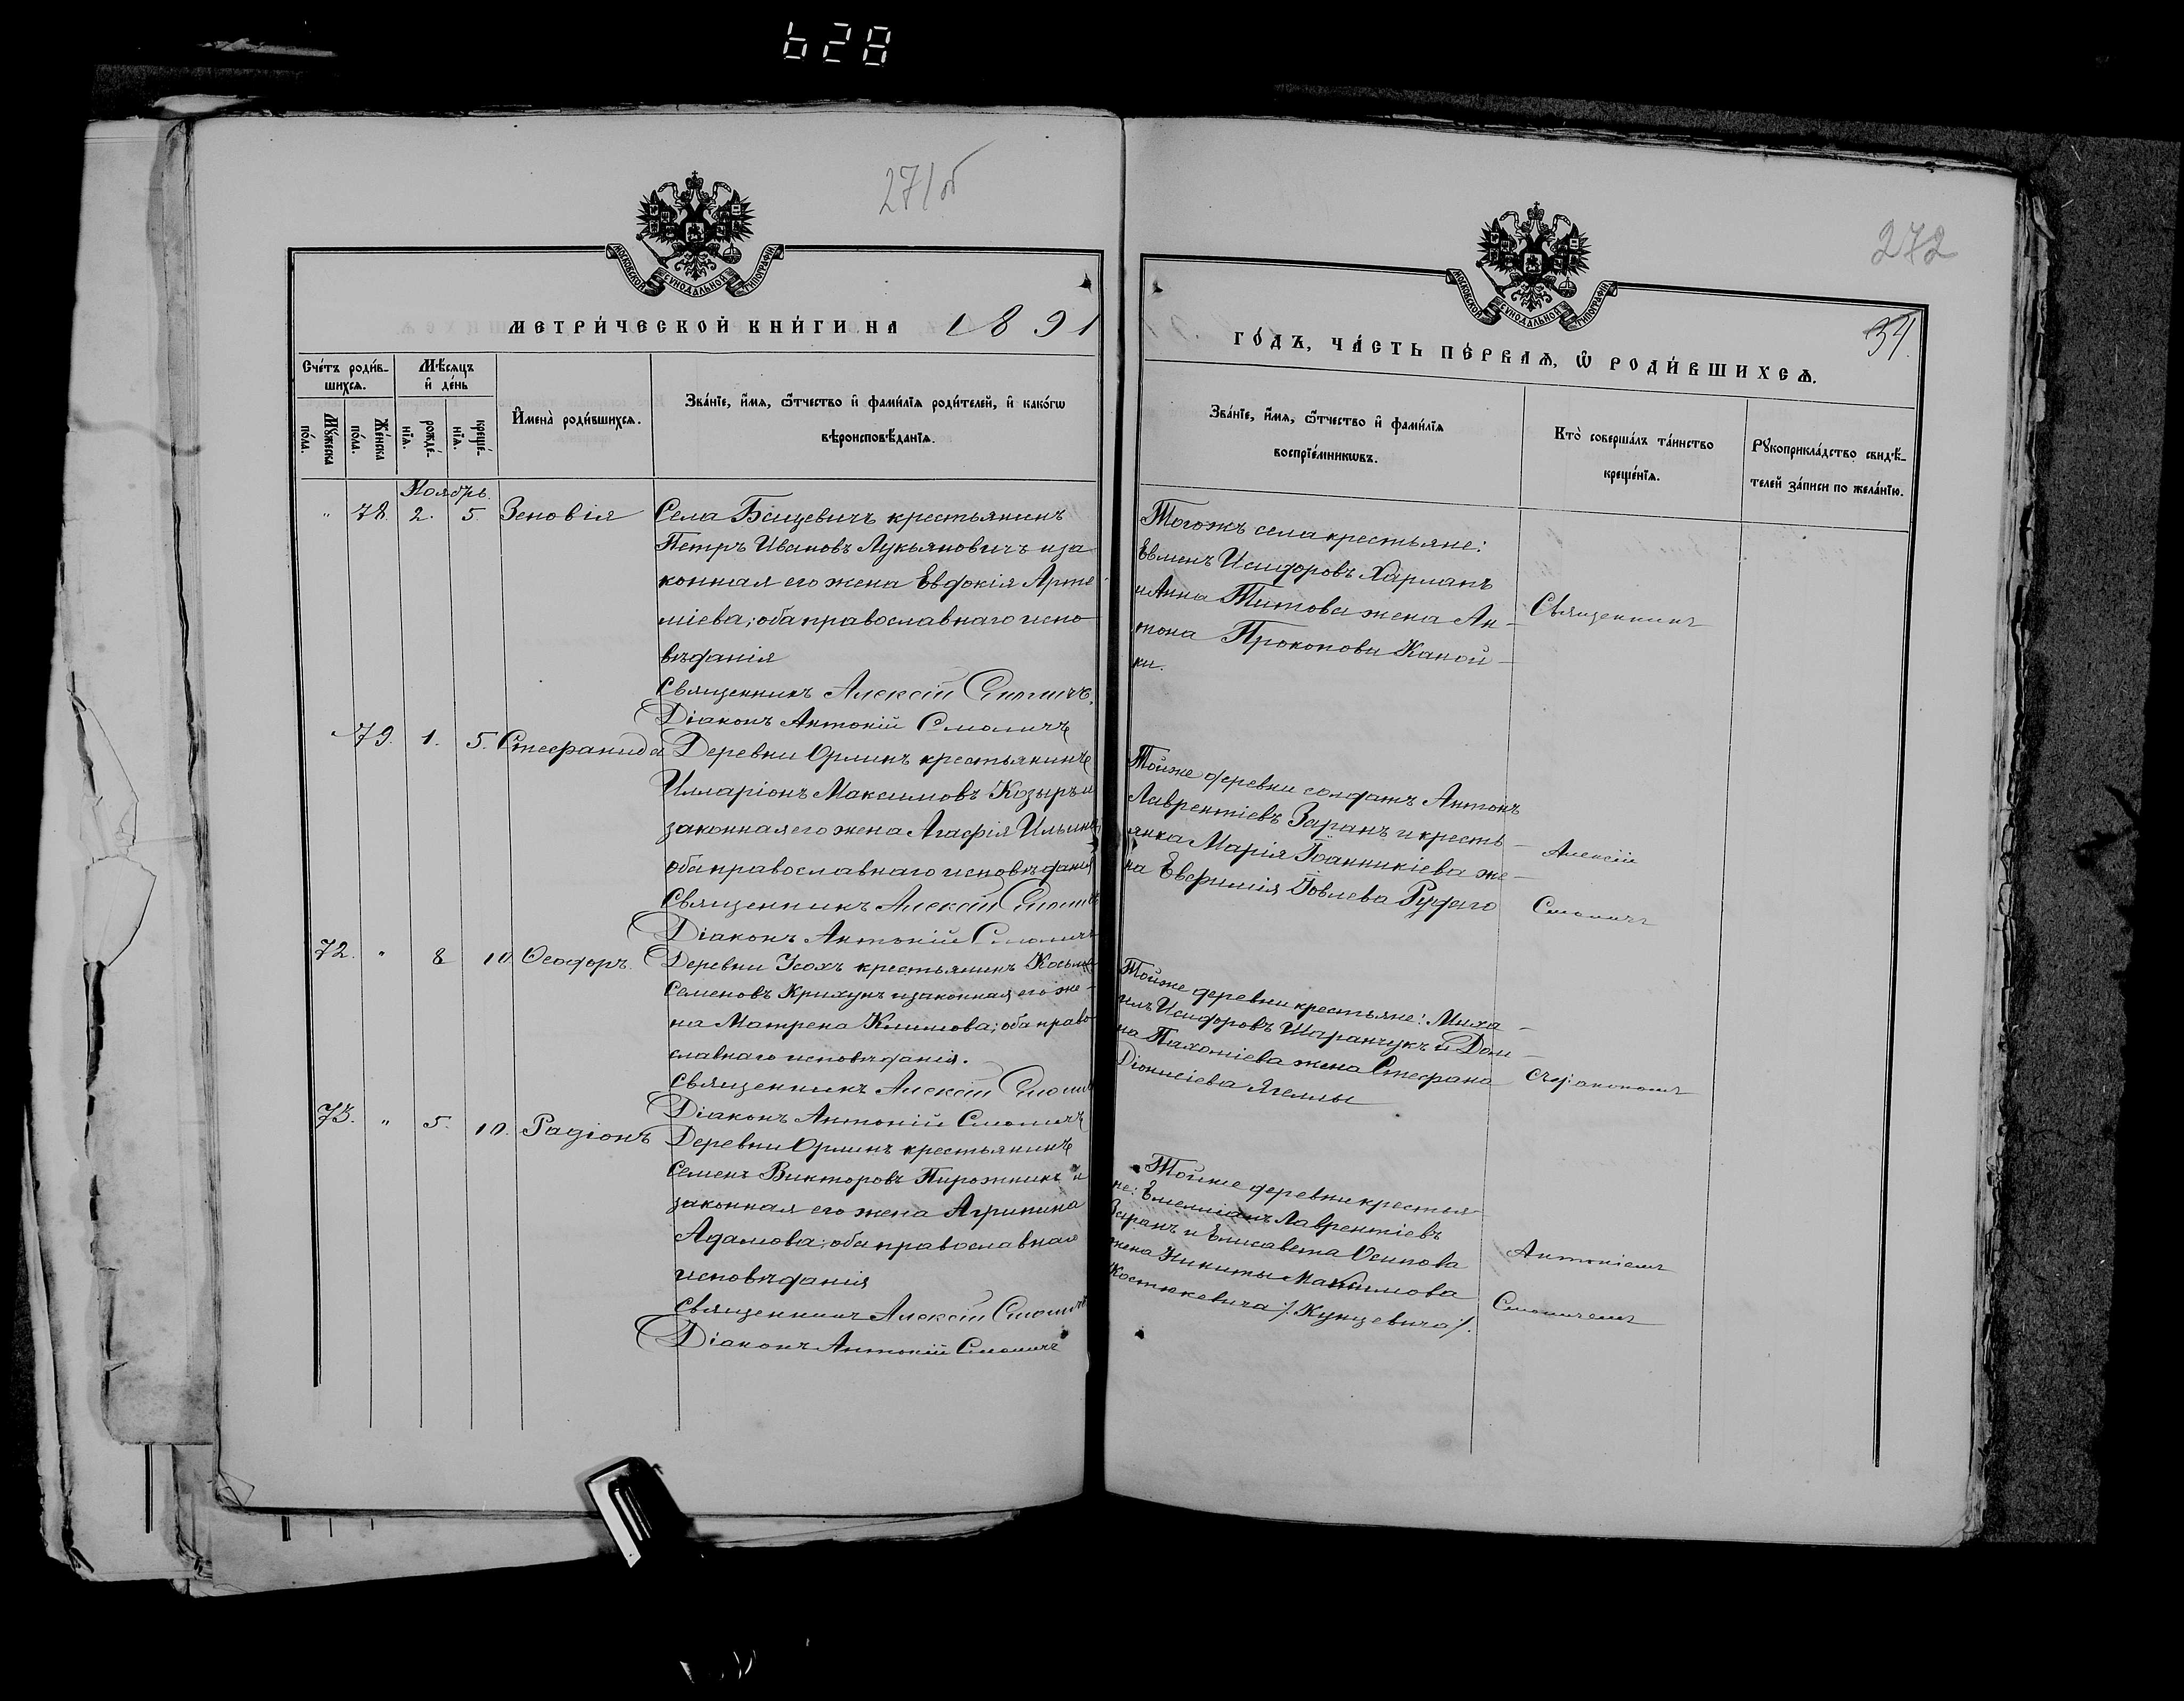 628
271 об
МОСКОВСКОЙ СѴНОДАЛЬНОЙ ТИПОГРАФІИ
МЕТРИ́ЧЕСКОЙ КНИ́ГИ НА 1891
Сче́тъ роди́в-
шихсѧ.
Мѣ́сяцъ
и҆ де́нь
Мꙋ́жеска
по́ла.
Же́нска
по́ла.
рожде́-
нїѧ.
креще́-
нїѧ.
И҆мена̀ роди́вшихсѧ.
Зва́нїе, и҆́мѧ, ѻ҆́тчество и҆ фами́лїѧ роди́телей, и҆ како́гѡ
вѣроисповѣ́данїѧ.
Ноябрь.
" 78. 2. 5. Зеновія
Села Бѣцевичъ крестьянинъ
Петръ Ивановъ Лукьяновичъ и за
конная его жена Евдокія Арте
міева; оба православнаго испо
вѣданія
Священникъ Алексій Смоличъ.
Діаконъ Антоній Смоличъ
79. 1. 5. Стефанида
Деревни Орлинъ крестьянинъ
Илларіонъ Максимовъ Козырь и
законная его жена Агафія Ильина
оба православнаго исповѣданія
Священникъ Алексій Смоличъ
Діаконъ Антоній Смоличъ
72. " 8 10 Ѳеодоръ.
Деревни Усохъ крестьянинъ Косьма
Семеновъ Крихунъ и законная его же-
на Матрена Климова; оба право
славнаго исповѣданія.
Священникъ Алексій Смоличъ
Діаконъ Антоній Смоличъ
73. " 5. 10. Радіонъ
Деревни Орлинъ крестьянинъ
Семенъ Викторовъ Пирожникъ и
законная его жена Агрипина
Адамова; оба православнаго
исповѣданія
Священникъ Алексій Смоличъ
Діаконъ Антоній Смоличъ
272
34.
МОСКОВСКОЙ СѴНОДАЛЬНОЙ ТИПОГРАФІИ
ГО́ДЪ, ЧА́СТЬ ПЕ́РВАѦ, Ѡ҆ РОДИ́ВШИХСѦ.
Зва́нїе, и҆́мѧ, ѻ҆́тчество и҆ фами́лїѧ
воспрїе́мникѡвъ.
Кто̀ соверша́лъ та́инство
креще́нїѧ.
Рꙋкоприкла́дство свидѣ́-
телей за́писи по жела́нїю.
Тогожъ села крестьяне:
Евменъ Исидоровъ Харланъ
и Анна Титова жена Ан-
тона Прокопови Каной-
ки.
Священникъ
Тойже деревни солдатъ Антонъ
Лаврентіевъ Заранъ и кресть-
янка Марія Іоанникіева же-
на Евфимія Іовлева Рудаго
Алексій
Смоличъ
Тойже деревни крестьяне: Миха-
илъ Исидоровъ Шаранчукъ и Дом-
на Пахоміева жена Стефана
Діонисіева Ягеллы
съ діакономъ
Тойже деревни крестья-
не: Емеліанъ Лаврентіевъ
Заранъ и Елисавета Осипова
жена Никиты Максимова
Костюкевича /: Кунцевича :/.
Антоніемъ
Смоличемъ